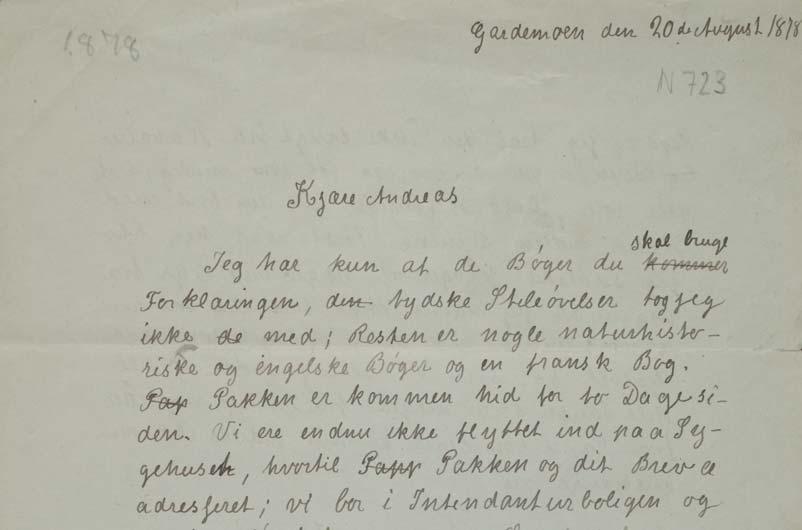 1878
Gardemoen den 20de August 1878
N 723
Kjære Andreas
skal bruge
Jeg har kun af de Bøger du kommer
Forklaringen, den tydske Steleøvelser tog jeg
ikke de med; Resten er nogle naturhisto-
riske og engelske Bøger og en fransk Bog.
Pap Pakken er kommen hid for to Dage si-
den. Vi ere endnu ikke flyttet ind paa Sy-
gehuset, hvortil Papp Pakken og dit Brev er
adresseret; vi bor i Intendanturboligen og